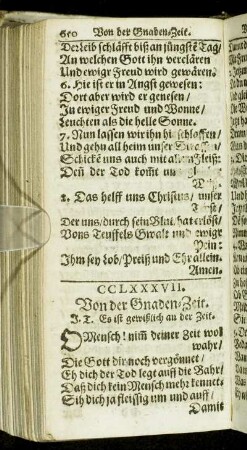 600 Von der Gnaden-Zeit.
Der Leib schläfft biß an jüngstē Tag/
An welchen Gott ihn verclären
Und ewigr Freud wird gewären.
6. Hie ist er in Angst gewesen:
Dort aber wird er genesen/
In ewiger Freud und Wonne/
Leuchten als die helle Sonne.
7. Nun lassen wir ihn hi schlaffen/
Und gehn all heim unser Strassen/
Schickē uns auch mit allem Fleiß:
Deñ der Tod komt un
2. Das helff uns Christus/ unser
Der uns/ durch sein Blut/ hat erlöst/
Vons Teuffels Gwalt und ewigr
Pein:
Ihm sey Lob/ Preiß und Ehr allein.
Amen.
CCLXXXVII.
Von der Gnaden-Zeit.
J. T. Es ist gewißlich an der Zeit.
O Mensch! nim̃ deiner Zeit wol
wahr/
Die Gott dir noch vergönnet/
Eh dich der Tod legt auff die Bahr/
Daß dich kein Mensch mehr kennet.
Sih dich ja fleissig um und auff/
Damit